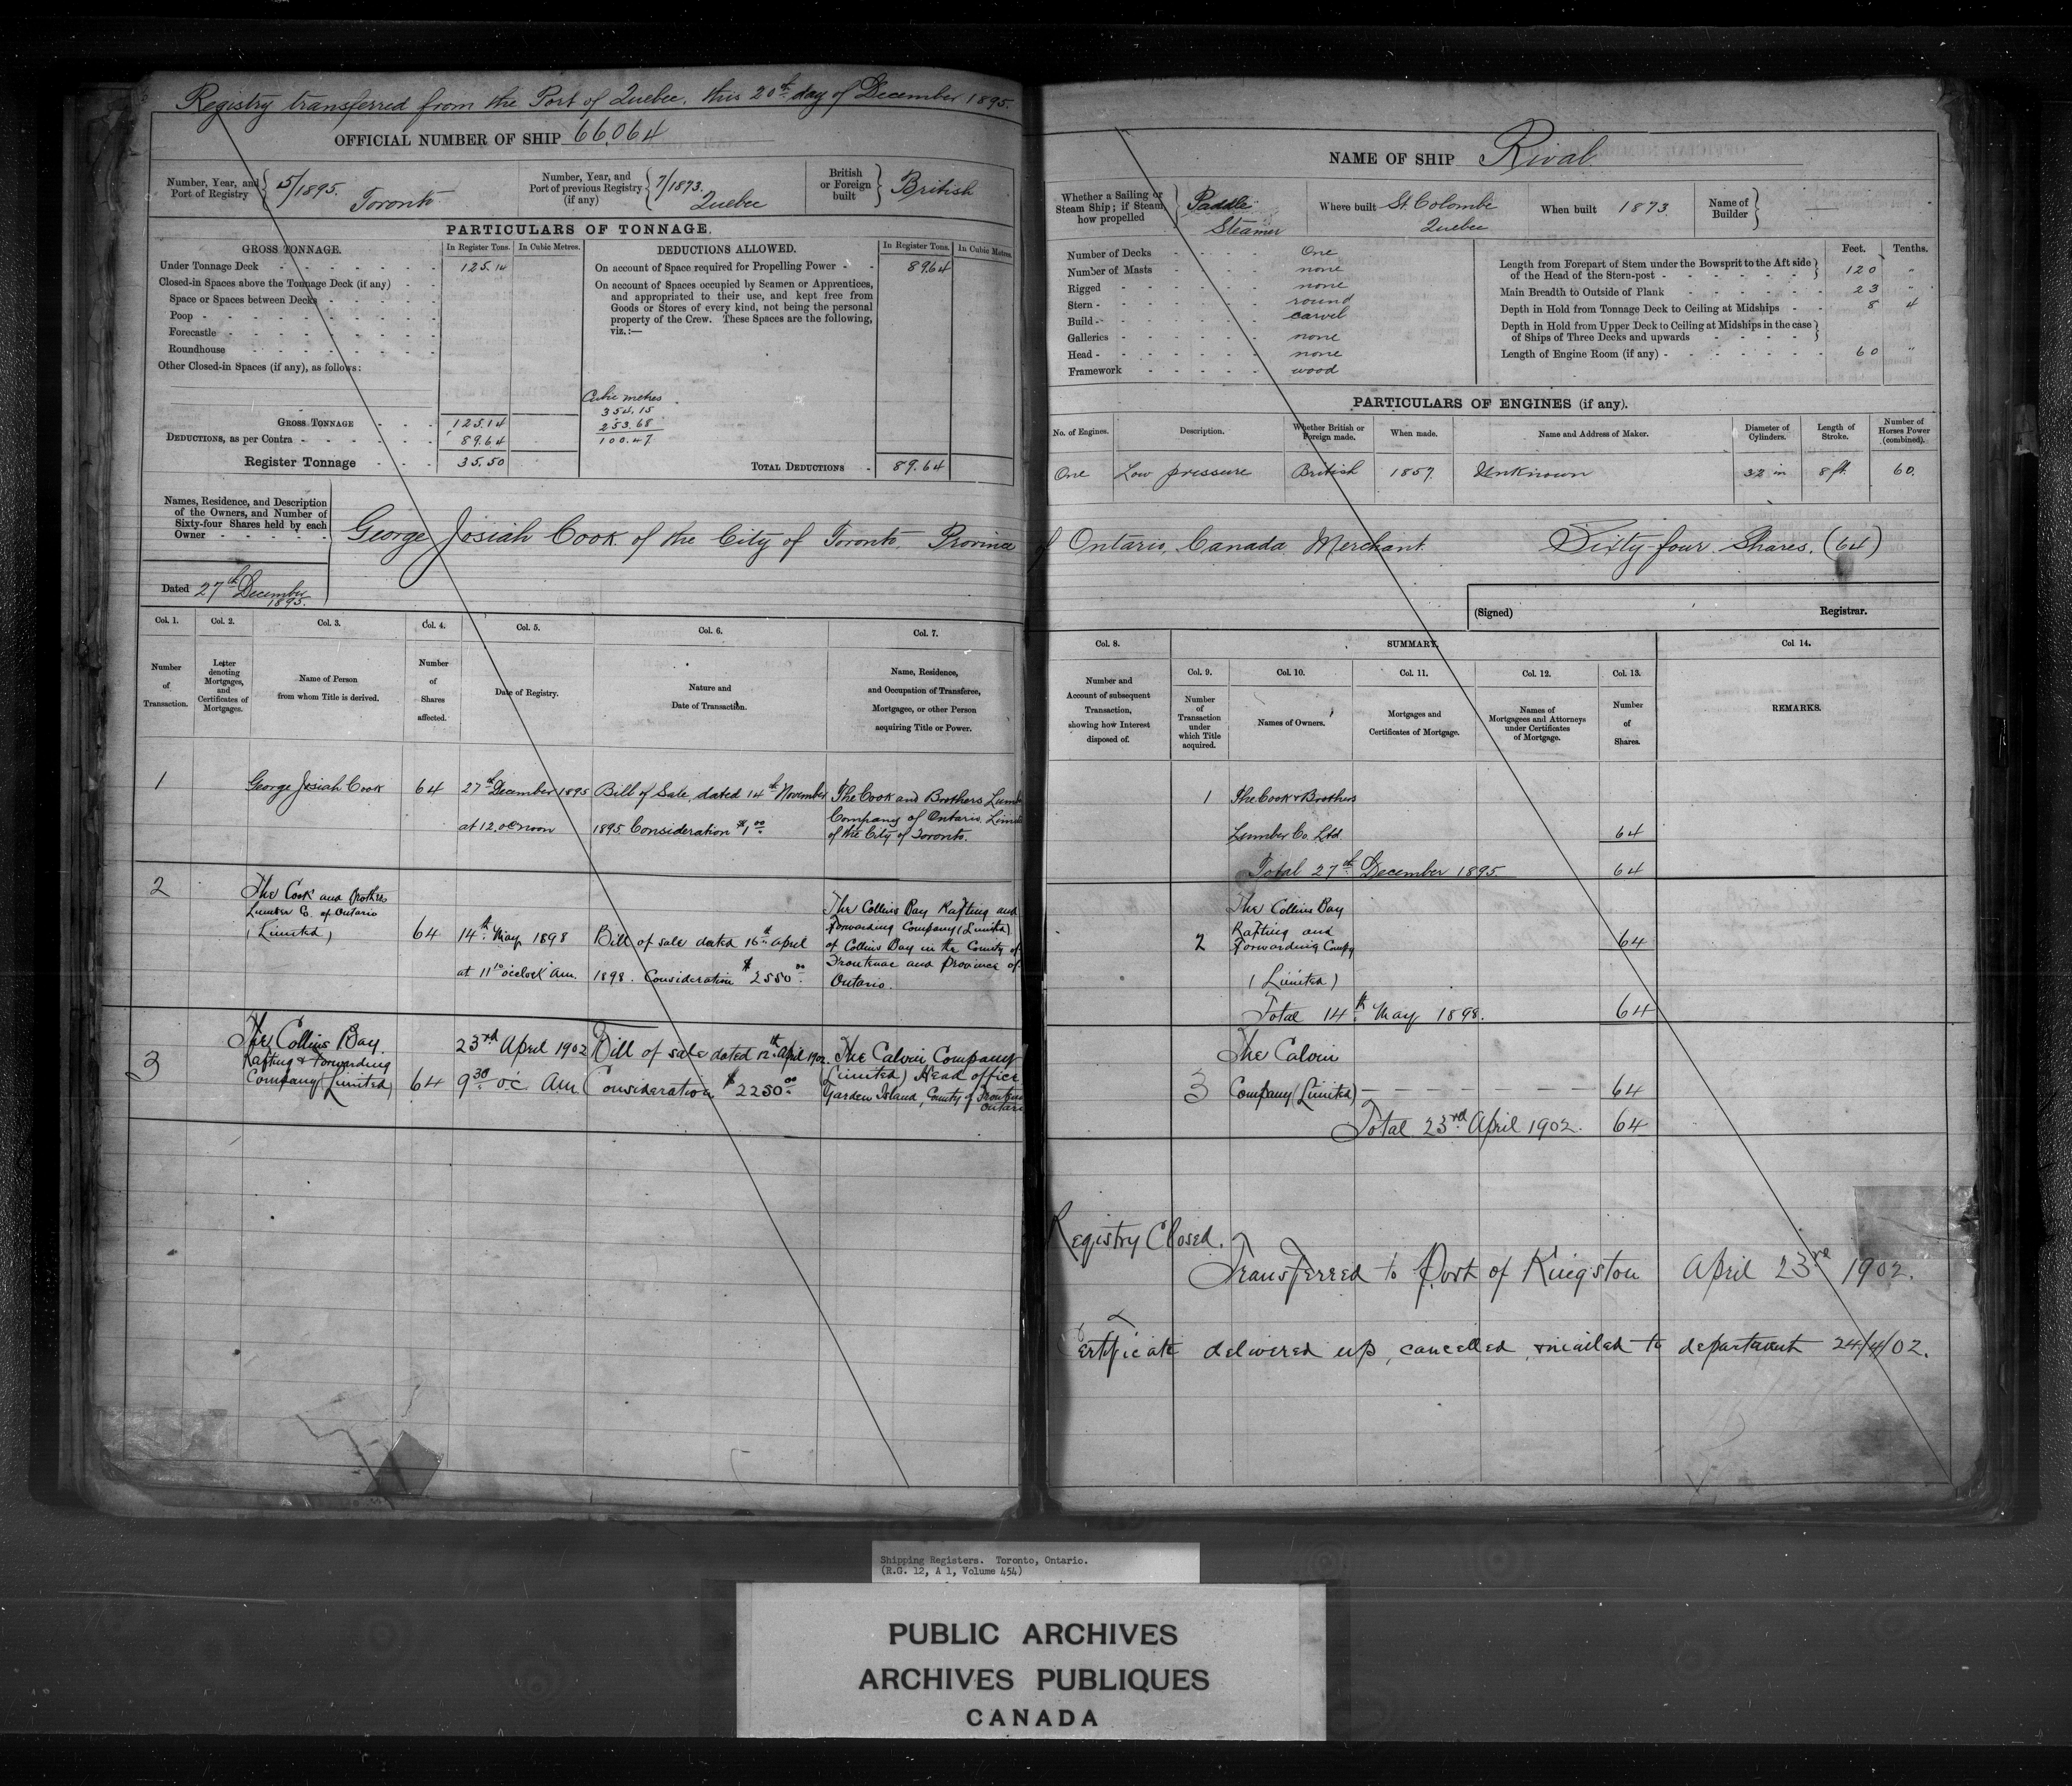 Registry transferred from the Port of Quebec. this 20th day of December 1895.
OFFICIAL NUMBER OF SHIP 66,064
Number, Year, and Port of Registry 5/1895. Toronto
Number, Year, and Port of previous Registry (if any) 7/1873. Quebec
British or Foreign built British
PARTICULARS OF TONNAGE.
GROSS TONNAGE. In Register Tons. In Cubic Metres.
Under Tonnage Deck 125.14
Closed-in Spaces above the Tonnage Deck (if any)
Space or Spaces between Decks
Poop
Forecastle
Roundhouse
Other Closed-in Spaces (if any), as follows:
GROSS TONNAGE 125.14
DEDUCTIONS, as per Contra 89.64
Register Tonnage 35.50
DEDUCTIONS ALLOWED. In Register Tons. In Cubic Metres.
On account of Space required for Propelling Power 89.64
On account of Spaces occupied by Seamen or Apprentices,
and appropriated to their use, and kept free from
Goods or Stores of every kind, not being the personal
property of the Crew. These Spaces are the following,
viz.:—
Cubic metres
354.15
253.68
100.47
TOTAL DEDUCTIONS 89.64
Names, Residence, and Description
of the Owners, and Number of
Sixty-four Shares held by each
Owner
George Josiah Cook of the City of Toronto Province
Dated 27th December
1895.
Col. 1. Col. 2. Col. 3. Col. 4. Col. 5. Col. 6. Col. 7.
Number of Transaction.
Letter denoting Mortgages, and Certificates of Mortgages.
Name of Person from whom Title is derived.
Number of Shares affected.
Date of Registry.
Nature and Date of Transaction.
Name, Residence, and Occupation of Transferee, Mortgagee, or other Person acquiring Title or Power.
1 George Josiah Cook 64
27th December 1895
at 12.oc noon
Bill of Sale, dated 14th November
1895 Consideration $1.00
The Cook and Brothers
Company of Ontario
of the City of Toronto.
2 The Cook and Brothers
Lumber Co. of Ontario
(Limited) 64
14th May 1898
at 11 o'clock am.
Bill of sale dated 16th April
1898. Consideration $2550.00
The Collins Bay Rafting and
Forwarding Company (Limited)
of Collins Bay in the County of
Frontenac and Province of
Ontario.
3 The Collins Bay
Rafting & Forwarding
Company (Limited) 64
23rd April 1902
9.30 oc. Am
Bill of sale dated 12th April 1902.
Consideration $2250.00
The Calvin Company
(Limited) Head office
Garden Island, County of
NAME OF SHIP Rival
Whether a Sailing or Steam Ship; if Steam, how propelled Paddle Steamer
Where built St. Colombe Quebec
When built 1873.
Name of Builder
Number of Decks One
Number of Masts none
Rigged none
Stern round
Build carvel
Galleries none
Head none
Framework wood
Feet. Tenths.
Length from Forepart of Stem under the Bowsprit to the Aft side
of the Head of the Stern-post 120 "
Main Breadth to Outside of Plank 23 "
Depth in Hold from Tonnage Deck to Ceiling at Midships 8 4
Depth in Hold from Upper Deck to Ceiling at Midships in the case
of Ships of Three Decks and upwards
Length of Engine Room (if any) 60 "
PARTICULARS OF ENGINES (if any).
No. of Engines. Description. Whether British or Foreign made. When made. Name and Address of Maker. Diameter of Cylinders. Length of Stroke. Number of Horses Power (combined).
One Low pressure British 1857. Unknown 32 in 8 ft. 60.
of Ontario, Canada Merchant. Sixty-four Shares. (64)
(Signed) Registrar.
Col. 8. SUMMARY. Col 14.
Col. 9. Col. 10. Col. 11. Col. 12. Col. 13.
Number and Account of subsequent Transaction, showing how Interest disposed of.
Number of Transaction under which Title acquired.
Names of Owners.
Mortgages and Certificates of Mortgage.
Names of Mortgagees and Attorneys under Certificates of Mortgage.
Number of Shares.
REMARKS.
1 The Cook & Brothers
Lumber Co. Ltd. 64
Total 27th December 1895 64
The Collins Bay
2 Rafting and 64
Forwarding Compy
(Limited)
Total 14th May 1898. 64
The Calvin
3 Company (Limited) 64
Total 23rd April 1902. 64
Registry Closed.
Transferred to Port of Kingston April 23rd 1902.
Certificate delivered up, cancelled & mailed to department 24/4/02.
Shipping Registers. Toronto, Ontario.
(R.G. 12, A 1, Volume 454)
PUBLIC ARCHIVES
ARCHIVES PUBLIQUES
CANADA